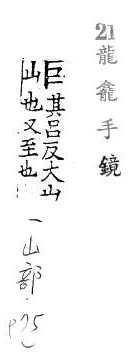 21 龍龕手鏡
岠其呂反大山
也又至也
一山部.
P75